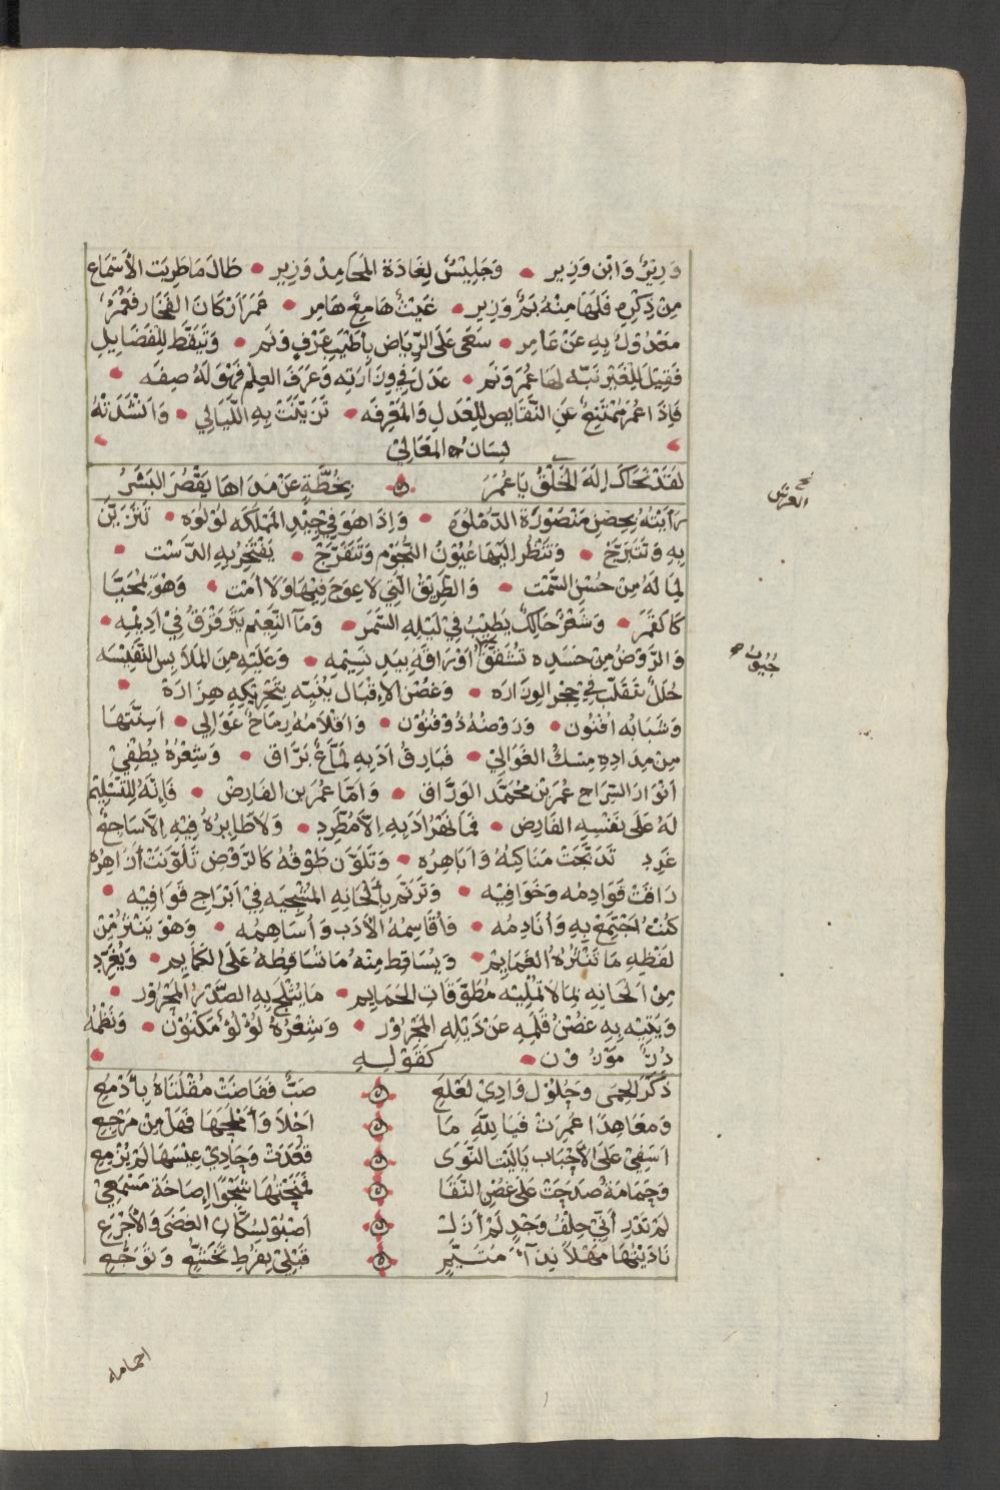 وَزِيرٌ وَابْن وَزِير • وَجَلِيسٌ لِغَادَة المَحَامِدْ وَزِير • طَالَ مَا طَرِبَت الأَسْمَاع
مِنْ ذِكْرِهِ فَلَهَا مِنْهُ بَمٌّ وَزِير • غَيْثٌ هَامِعٌ هَامِر • عَمَرَ اَرْكَانَ الفَخَار فَعُمَرُ
مَعْدُولٌ بِهِ عَنْ عَامِر • سَعَى عَلَى الرِّيَاض بِاَطْيَبِ عَرْفٍ وَنَم • وَتَيَقَّظ لِلْفَضَايِلِ
فَقِيلَ لِلْغَيْرِ نَبِّه لَهَا عُمَرَ وَنَم • عَدَلَ فِي وِزَارَتِه وَعَرَفَ العِلْم فَهْوَ لَهُ صِفَه •
فَاِذَا عُمَرُ مُمْتَنِعٌ عَنِ النَّقَايِص لِلْعَدْلِ وَالمَعْرِفَه • تَزَيَّنَتْ بِهِ اللَّيَالِي • وَاَنْشَدَتْهُ
• لِسَان المَعَالِيْ •
لَقَدْ حَبَاكَ اِلَهُ الخَلْقِ يَا عُمَرُ ۞ بِخُطَّةٍ عَنْ مَدَاهَا يَقْصُرُ البَشَرُ
رَاَيْتُهُ بِحِضْنِ مَنْصُورَة الدُّمْلُوَه • وَاِذَا هُوَ فِيْ جِيْدِ المَمْلَكَه لُؤْلُوَه • تَتَزَيَّن
بِهِ وَتَتَبَرَّجْ • وَتَنْظُر اِلَيْهَا عُيُوْنُ النُّجُوْم وَتَتَفَرَّجْ • يَفْتَخِرُ بِهِ الدَّسْت •
لِمَا لَهُ مِنْ حُسْنِ السَّمْت • وَالطَّرِيْقُ الَّتِي لَا عِوَجَ فِيْهَا وَلَا اَمْت • وَهْوَ بِمُحَيَّا
كَالقَمَر • وَشَعْرٌ حَالِكٌ يَطِيْبُ فِيْ لَيْلِهِ السَّمَر • وَمَآ النَّعِيْم يَتَرَقْرَقُ فِيْ اَدِيْمِه •
وَالرَّوْضُ مِنْ حَسَدِه تَشَقَّقَ اَوْرَاقَه بِيَدِ نَسِيْمِه • وَعَلَيْهِ مِنَ المَلَابِسِ النَّفِيْسَه
حُلَلٌ تَقَلَّبَ فِيْ حِجْر الوِزَارَه • وَغُصْنُ الاِقْبَال يُنَبِّه بِتَحْرِيْكِه هِزَارَهْ •
وَشَبَابُه اُفْنُون • وَرَوْضُهُ ذُو فُنُوْن • وَاَقْلَامُهُ رِمَاحٌ عَوَالِي • اَسِنَّتُهَا
مِنْ مِدَادِهِ مِسْكُ الغَوَالِيْ • فَبَارِقُ اَدَبِهِ لَمَّاعٌ بَرَّاق • وَشِعْرُهُ يُطْفِيْ
اَنْوَارَ السِّرَاج عُمَرَ بْن مُحَمَّد الوَرَّاق • وَاَمَّا عُمَرُ بن الفَارِض • فَاِنَّهُ لِلتَّسْلِيْمِ
لَهُ عَلَى نَفْسِهِ الفَارِض • فَمَا نَهَرُ اَدَبِهِ اِلَّا مُطَّرِد • وَلَا طَايِرُهُ فِيْهِ اِلَّا سَاجِعٌ
غَرِد تَدَبَّجَتْ مَنَاكِبُهُ وَاَبَاهِرُه • وَتَلَوَّنَ طَوْقُهُ كَالرَّوْض تَلَوَّنَتْ اَزَاهِرُه
رَاقَتْ قَوَادِمُه وَخَوَافِيْه • وَتَرَنَّمَ بِاَلْحَانِهِ المُشْجِيَه فِيْ اَبْرَاجِ قَوَافِيْه •
كُنْتُ اَجْتَمِعُ بِهِ وَاُنَادِمُه • فَاُقَاسِمُهُ الاَدَب وَاُسَاهِمُه • وَهْوَ يَنْثُرُ مِنْ
لَفْظِهِ مَا تَنْثُرُهُ الغَمَايِمُ • وَيُسَاقِط مِنْهُ مَا تُسَاقِطُهُ عَلَى الكَمَايِم • وَيُغَرِّدِ
مِنْ اَلْحَانِه بِمَا لَا تُمْلِيْه مُطَوَّقَات الحَمَايِم • مَا يَنْثَلِجُ بِهِ الصَّدْرُ المَحْرُوْر •
وَيَتِيْه بِهِ غُصْنُ قَلَمِهِ عَنْ ذَيْلِهِ المَجْرُوْر • وَشِعْرُهُ لُؤْلُؤٌ مَكْنُوْن • وَنَظْمُهُ
دُرٌّ مَوْزُوْن • كَقَوْلِهِ •
ذَكَرَ الحِمَى وَحُلُوْلَ وَادِيْ لَعْلَعِ ۞ صَبٌّ فَفَاضَتْ مُقْلَتَاهُ بِأَدْمُعِ
وَمَعَاهِدًا عَمِرَتْ فَيَا لِلّهِ مَا ۞ اَحْلَا وَأَمْلَحَهَا فَهَلْ مِنْ مَرْجِعِ
اَسَفِيْ عَلَى الأَحْبَاب يَالَيْتَ النَّوَى ۞ فُقِدَتْ وَحَادِيْ عِيْسِهَا لَمْ يُزْمِعِ
وَحَمَامَةٌ صَدَحَتْ عَلَى غُصْنِ النَّقَا ۞ فَمَنَحْتُهَا شَجْوًا اِصَاخَةَ مَسْمَعِيْ
لَمْ تَدْرِ أَنِّيْ حِلْفُ وَجْدٍ لَمْ أَزَلْ ۞ اَصْبُوْ لِسُكَّانِ الغَضَى وَالأَجْرَعِ
نَادَيْتُهَا مَهْلًا نِدَآءَ مُتَيَّمٍ ۞ قَبْلِيْ بِفَرْطِ تَخَشُّعٍ وَتَوَجُّعِ
العرش
جيوب
احمامه